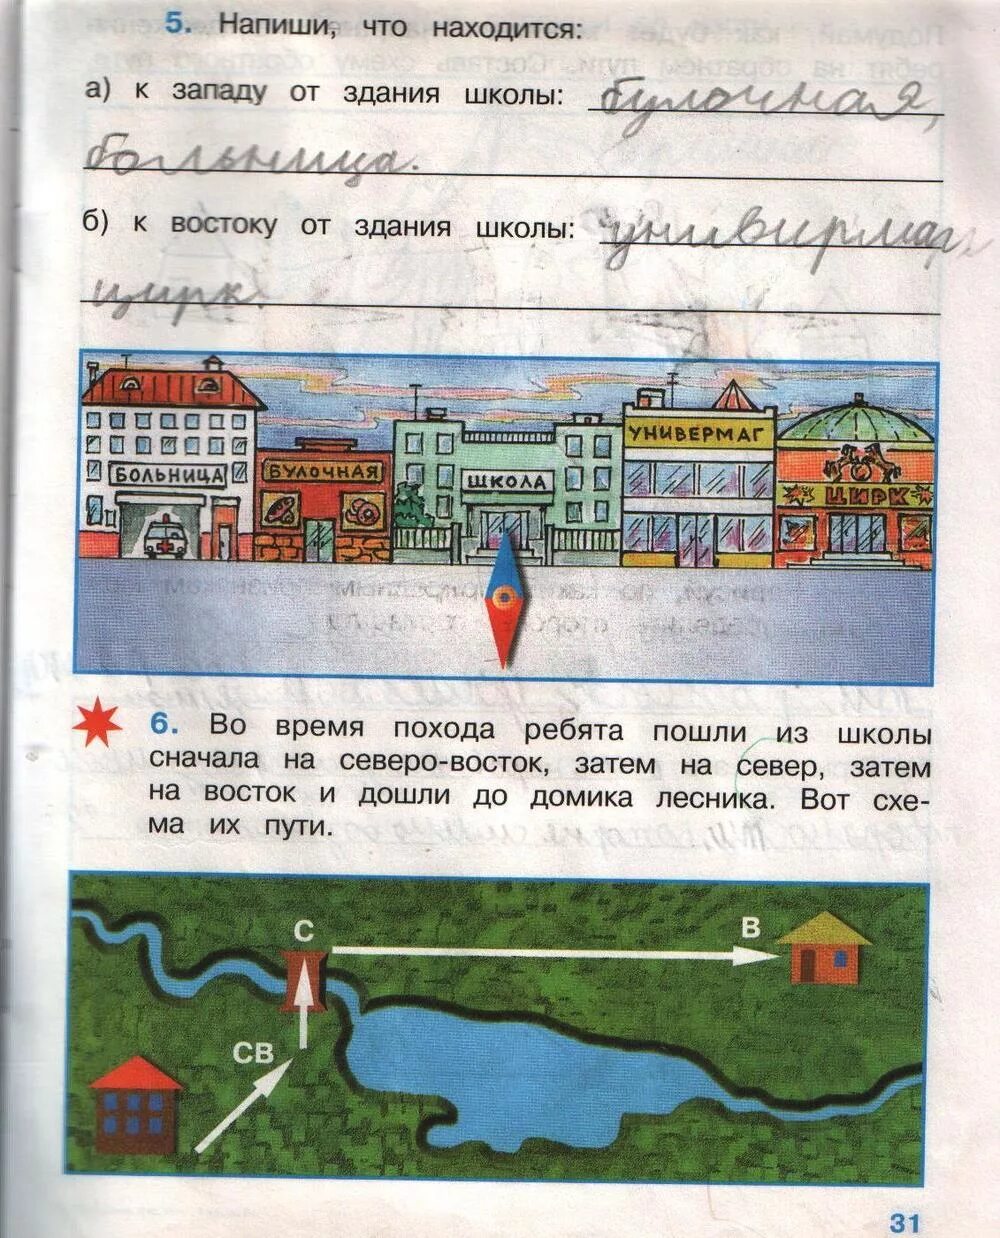 5. Напиши, что находится:
а) к западу от здания школы: булочная,
больница.
б) к востоку от здания школы: унивирмаг,
цирк.
БОЛЬНИЦА БУЛОЧНАЯ ШКОЛА УНИВЕРМАГ ЦИРК
6. Во время похода ребята пошли из школы
сначала на северо-восток, затем на север, затем
на восток и дошли до домика лесника. Вот схе-
ма их пути.
С В
СВ
31